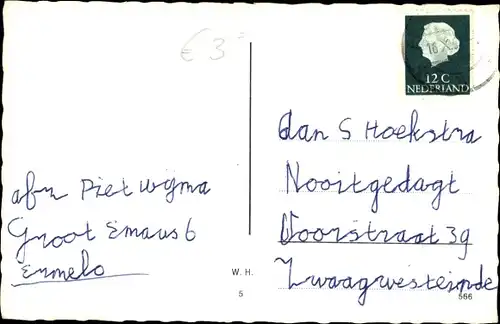 € 3
12 C
NEDERLAND
afz Piet Wijma
Groot Emaus 6
Ermelo
aan S Hoekstra
Nooitgedagt
Voorstraat 39
Zwaagwesteinde
W. H.
5
566